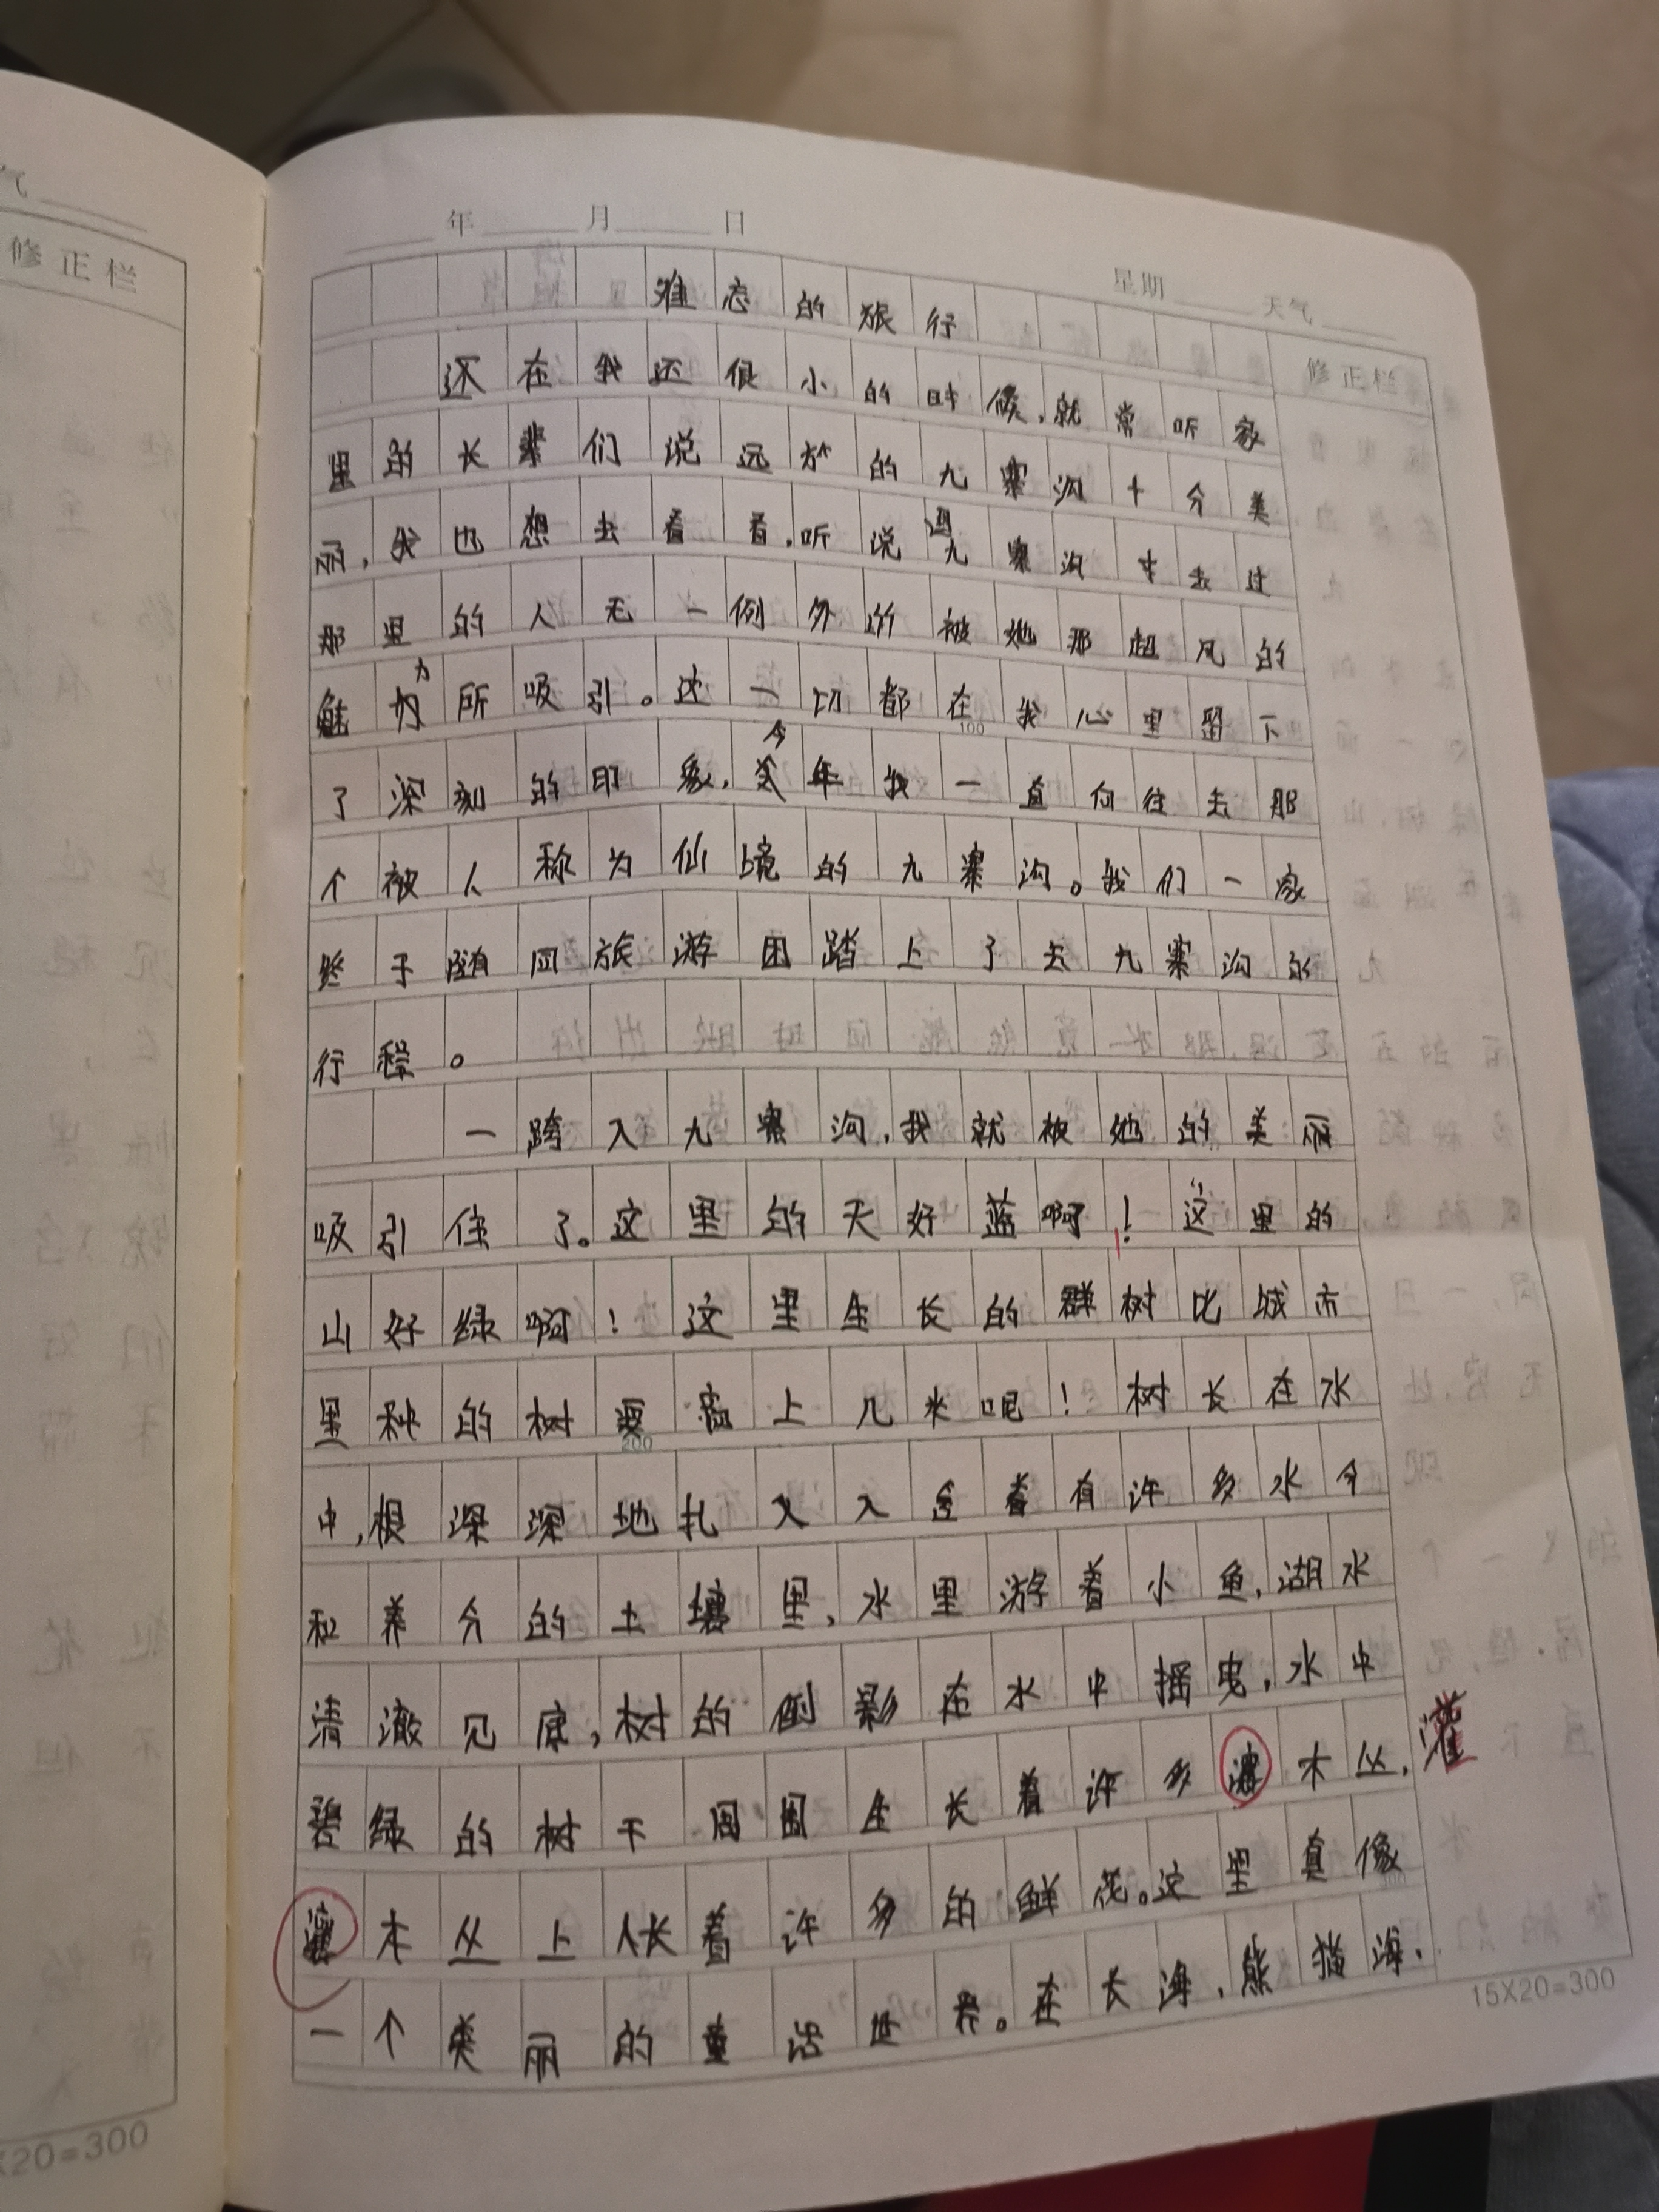 年 月 日
星期 天气
修正栏
难忘的旅行
还在我还很小的时候,就常听家
里的长辈们说远方的九寨沟十分美
丽,我也想去看看,听说遇九寨沟才去过
那里的人无一例外的被她那超凡的
魅力所吸引。这一切都在我心里留下
了深刻的印象,今年我一直向往去那
个被人称为仙境的九寨沟。我们一家
终于随同旅游团踏上了去九寨沟的
行程。
一跨入九寨沟,我就被她的美丽
吸引住了。这里的天好蓝啊!这里的
山好绿啊!这里生长的群树比城市
里种的树要高上几米呢!树长在水
中,根深深地扎入入含着有许多水分
和养分的土壤里,水里游着小鱼,湖水
清澈见底,树的倒影在水中摇曳,水中
碧绿的树干周围生长着许多木丛,
灌
木丛上长着许多的鲜花。这里真像
一个美丽的童话世界。在长海,熊猫海、
100
200
300
15X20=300
气
修正栏
X20=300